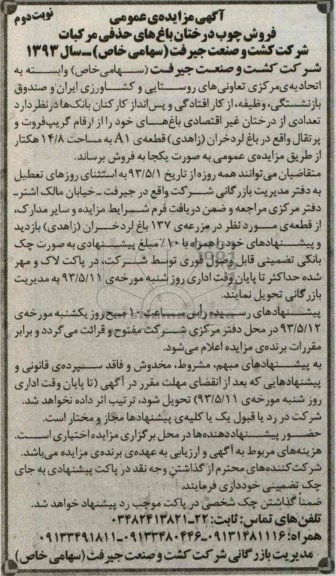 آگهی مزایده‌ی عمومی
نوبت دوم
فروش چوب درختان باغ‌های حذفی مرکبات
شرکت کشت و صنعت جیرفت (سهامی خاص) ــ سال ۱۳۹۳
شرکت کشت و صنعت جیرفت (سهامی خاص) وابسته به
اتحادیه‌ی مرکزی تعاونی‌های روستایی و کشاورزی ایران و صندوق
بازنشستگی، وظیفه، از کارافتادگی و پس‌انداز کارکنان بانک‌ها در نظر دارد
تعدادی از درختان غیر اقتصادی باغ‌های خود را از ارقام گریپ‌فروت و
پرتقال واقع در باغ لردخران (زاهدی) قطعه‌ی A۱ به مساحت ۱۴/۸ هکتار
از طریق مزایده‌ی عمومی به صورت یکجا به فروش برساند.
متقاضیان می‌توانند همه روزه از تاریخ ۹۳/۵/۱ به استثنای روزهای تعطیل
به دفتر مدیریت بازرگانی شرکت واقع در جیرفت ـ خیابان مالک اشتر ـ
دفتر مرکزی مراجعه و ضمن دریافت فرم شرایط مزایده و سایر مدارک،
از قطعه‌ی مورد نظر در مزرعه‌ی ۱۳۷ باغ لردخران (زاهدی) بازدید
و پیشنهادهای خود را همراه با ۱۰٪ مبلغ پیشنهادی به صورت چک
بانکی تضمینی قابل وصول فوری توسط شرکت، در پاکت لاک و مهر
شده حداکثر تا پایان وقت اداری روز شنبه مورخه‌ی ۹۳/۵/۱۱ به مدیریت
بازرگانی تحویل نمایند.
پیشنهادهای رسیده راس ساعت ۱۰ صبح روز یکشنبه مورخه‌ی
۹۳/۵/۱۲ در محل دفتر مرکزی شرکت مفتوح و قرائت می‌گردد و برابر
مقررات برنده‌ی مزایده اعلام می‌شود.
به پیشنهادهای مبهم، مشروط، مخدوش و فاقد سپرده‌ی قانونی و
پیشنهادهایی که بعد از انقضای مهلت مقرر در آگهی (تا پایان وقت اداری
روز شنبه مورخه‌ی ۹۳/۵/۱۱) تحویل شود، ترتیب اثر داده نخواهد شد.
شرکت در رد یا قبول یک یا کلیه‌ی پیشنهادها مجاز و مختار است.
حضور پیشنهاددهنده‌ها در محل برگزاری مزایده اختیاری است.
هزینه‌های مربوط به آگهی و ارزیابی به عهده‌ی برنده‌ی مزایده می‌باشد.
شرکت‌کننده‌های محترم از گذاشتن وجه نقد در پاکت پیشنهادی به جای
چک تضمینی خودداری فرمایند.
ضمناً گذاشتن چک شخصی در پاکت موجب رد پیشنهاد خواهد شد.
تلفن‌های تماس: ثابت: ۲۲ـ۰۳۴۸۲۴۱۳۸۲۱
همراه: ۰۹۱۳۱۴۸۱۱۱۶ـ۰۹۱۳۳۴۸۰۴۴۶ـ۰۹۱۳۳۴۹۱۸۱۱
مدیریت بازرگانی شرکت کشت و صنعت جیرفت (سهامی خاص)